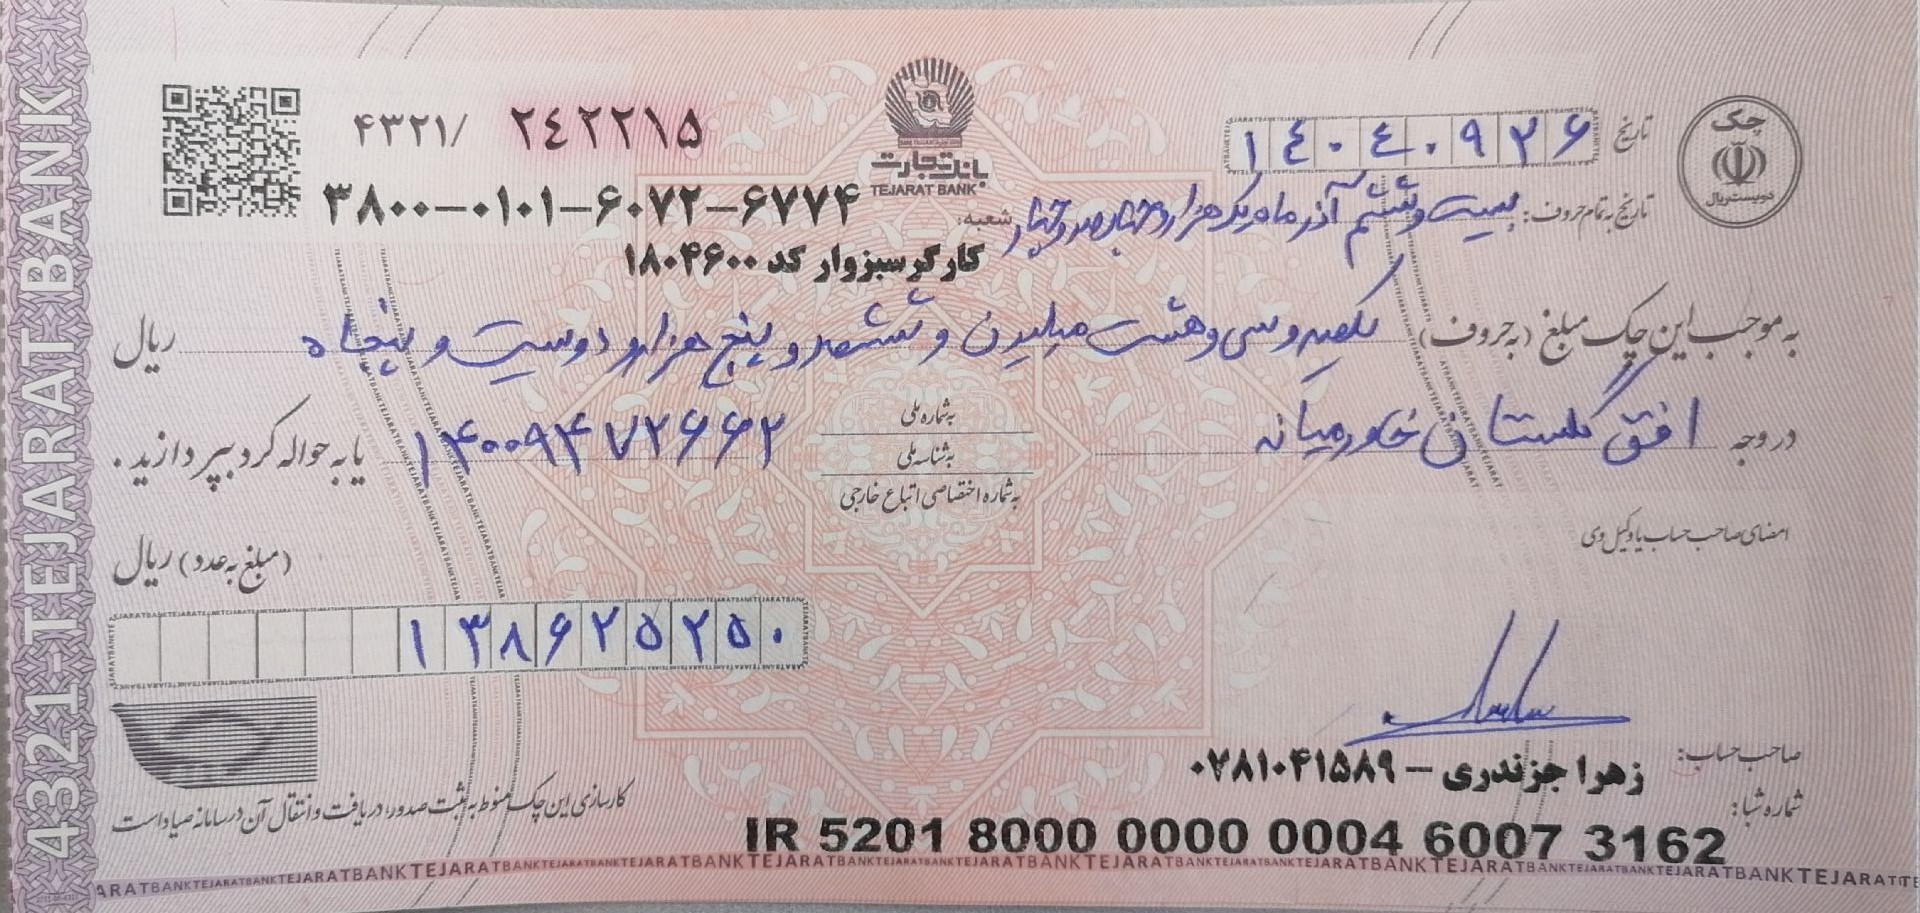 ۴۳۲۱/ ۲۴۲۲۱۵
۳۸۰۰-۰۱۰۱-۶۰۷۲-۶۷۷۴
بانک تجارت
TEJARAT BANK
شعبه:
کارگر سبزوار کد ۱۸۰۴۶۰۰
چک
دویست ریال
تاریخ ۱۴۰۴۰۹۲۶
تاریخ به تمام حروف: بیست و ششم آذر ماه یکهزار و چهارصد و چهار
به موجب این چک مبلغ (به حروف) یکصد و سی و هشت میلیون و ششصد و بیست و پنج هزار و دویست و پنجاه ریال
در وجه افق گلستان خاورمیانه
به شماره ملی
به شناسه ملی
به شماره اختصاصی اتباع خارجی
۱۴۰۰۹۴۷۲۶۶۲ یا به حواله کرد بپردازید.
امضای صاحب حساب یا وکیل وی
(مبلغ به عدد) ریال
۱۳۸۶۲۵۲۵۰
صاحب حساب: زهرا جزندری - ۰۷۸۱۰۴۱۵۸۹
شماره شبا: IR 5201 8000 0000 0004 6007 3162
کارسازی این چک منوط به ثبت صدور، دریافت و انتقال آن در سامانه صیاد است
4321-TEJARAT BANK